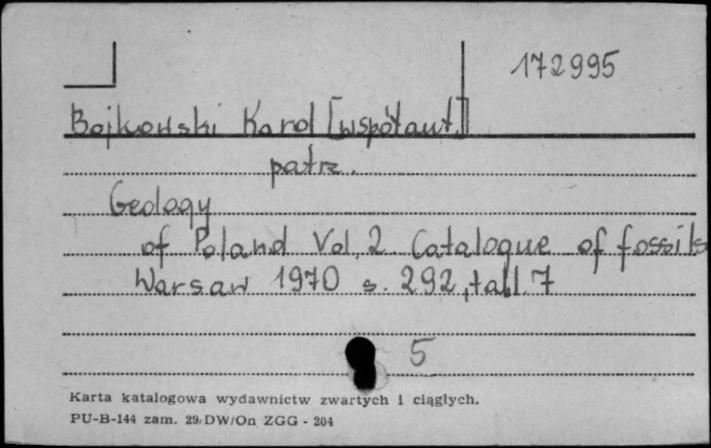 172995
Bojkowski Karol [współaut.]
patrz.
Geology
of Poland Vol. 2. Catalogue of fossils
Warsaw 1970 s. 292, tabl. 7
5
Karta katalogowa wydawnictw zwartych i ciągłych.
PU-B-144 zam. 29/DW/On ZGG - 204